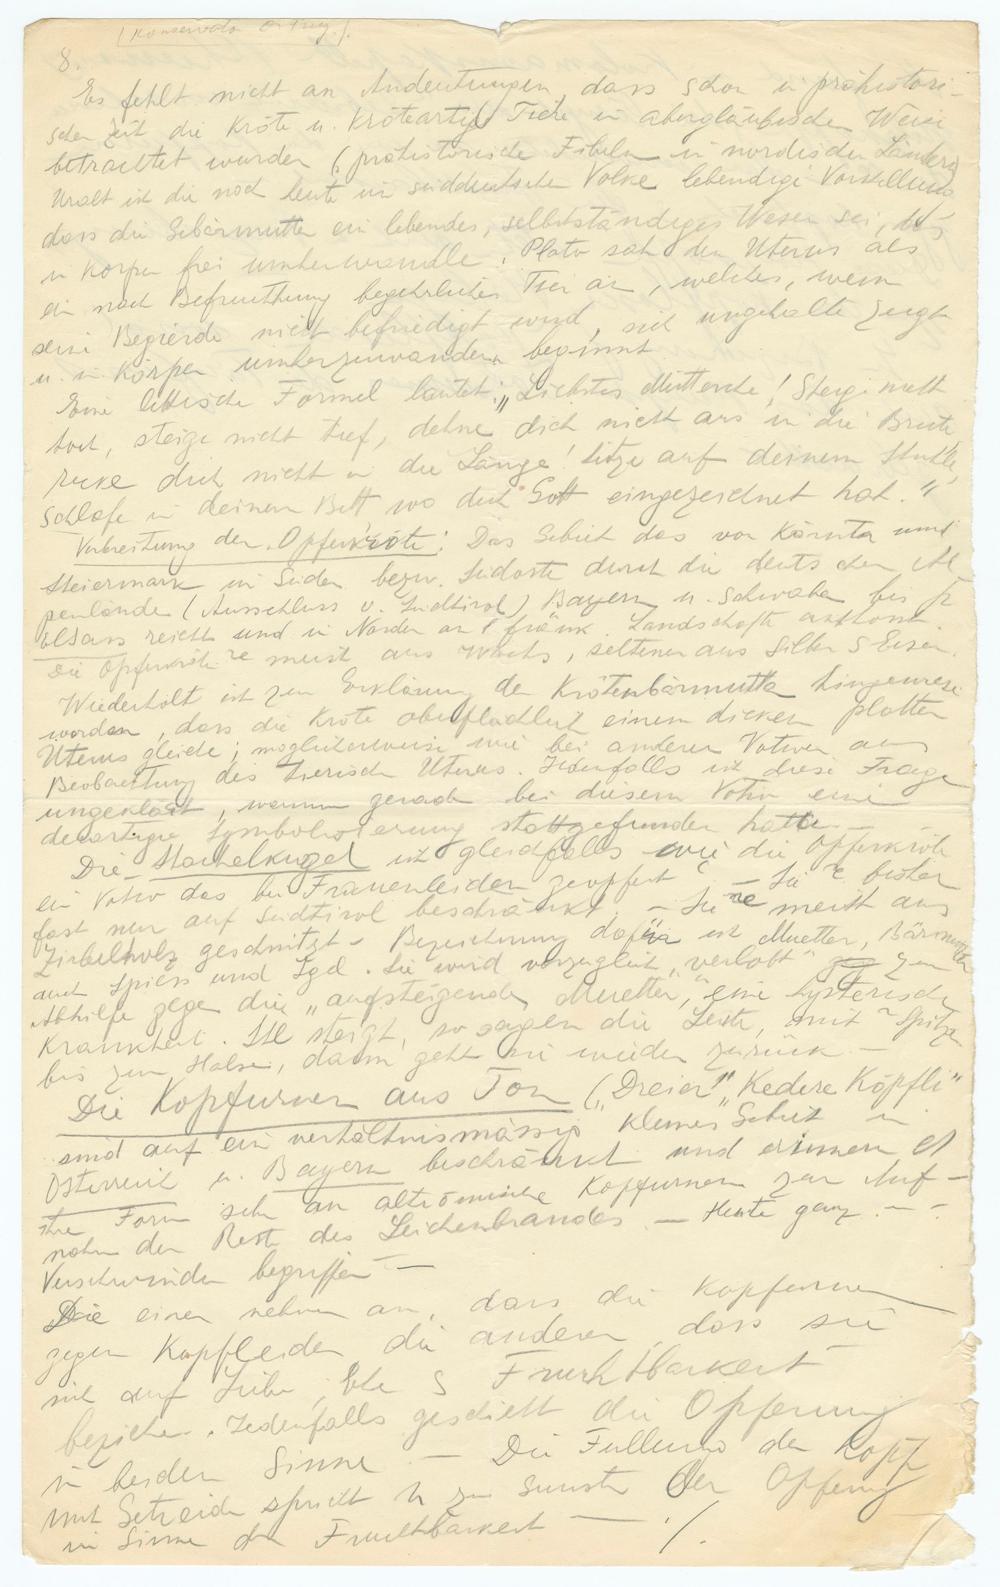 8.
Es fehlt nicht an Andeutungen, dass schon in prähistori-
schen Zeit die Kröte u. Krötenartige Tiere in abergläubischen Weise
betrachtet wurden (prähistorische Fibeln in nordischen Ländern)
Uralt ist die noch heute im süddeutschen Volke lebendige Vorstellung
dass die Gebärmutter ein lebendes, selbstständiges Wesen sei, das
im Körper frei umherwandle. Plato sah den Uterus als
ein nach Befruchtung begehrliches Tier an, welches, wenn
seine Begierde nicht befriedigt wird, sich ungehalten zeigt
u. im Körper umherzuwandern beginnt.
Eine lettische Formel lautet: „Liebstes Mütterche! Steige nicht
hoch, steige nicht tief, dehne dich nicht aus in die Breite
recke dich nicht in die Länge! Sitze auf deinem Stuhle,
Schlafe in deinem Bett wo dich Gott eingezeichnet hat."
Verbreitung der Opferkröte: Das Gebiet das von Kärnten und
Steiermark im Süden bezw. Südosten durch die deutschen Al
penlände (Ausschluss v. Südtirol) Bayern u. Schwaben bis z
Elsass reicht und im Norden an d fränk. Landschafte
Die Opferkröte meist aus Wachs, seltener aus Silber & Eisen.
Wiederholt ist zur Erklärung der Krötenbärmutter hingewiese
worden, dass die Kröte oberflächlich einem dicken platten
Uterus gleiche; möglicherweise wie bei anderen Votiven aus
Beobachtung des tierischen Uterus. Jedenfalls ist diese Frage
ungeklärt, warum gerade bei diesem Votiv eine
derartige Symbolisierung stattgefunden hatte. —
Die Stachelkugel ist gleichfalls wie die Opferkröte
ein Votiv das bei Frauenleiden geopfert — Sie bisher
fast nur auf Südtirol beschränkt. — Sie meist aus
Zirbelholz geschnitzt – Bezeichnung dafür ist Muetter, Bärmutter
auch Spiess und Igel. Sie wird vorzüglich „verlobt" zur
Abhilfe gege die „aufsteigende Muetter", eine hysterische
Krankheit. Sie steigt, so sagen die Leute, mit Spitze
bis zum Halse, dann geht sie wieder zurück —
Die Kopfurnen aus Ton („Dreier" „Kedere Köpfli"
sind auf ein verhältnismässig kleines Gebiet in
Österreich u. Bayern beschränkt und erinnern
ihre Form sehr an altrömische Kopfurnen zur Auf-
nahm der Reste des Leichenbrandes — Heute ganz im
Verschwinden begriffen —
Die einen nehmen an, dass die Kopfurnen
gegen Kopfleiden die anderen, dass sie
sich auf Liebe, Ehe & Fruchtbarkeit
beziehen. Jedenfalls geschieht die Opferung
in beiden Sinne — Die Füllung der Kopf
mit Getreide spricht zu Gunsten der Opferung
im Sinne der Fruchtbarkeit — ./.